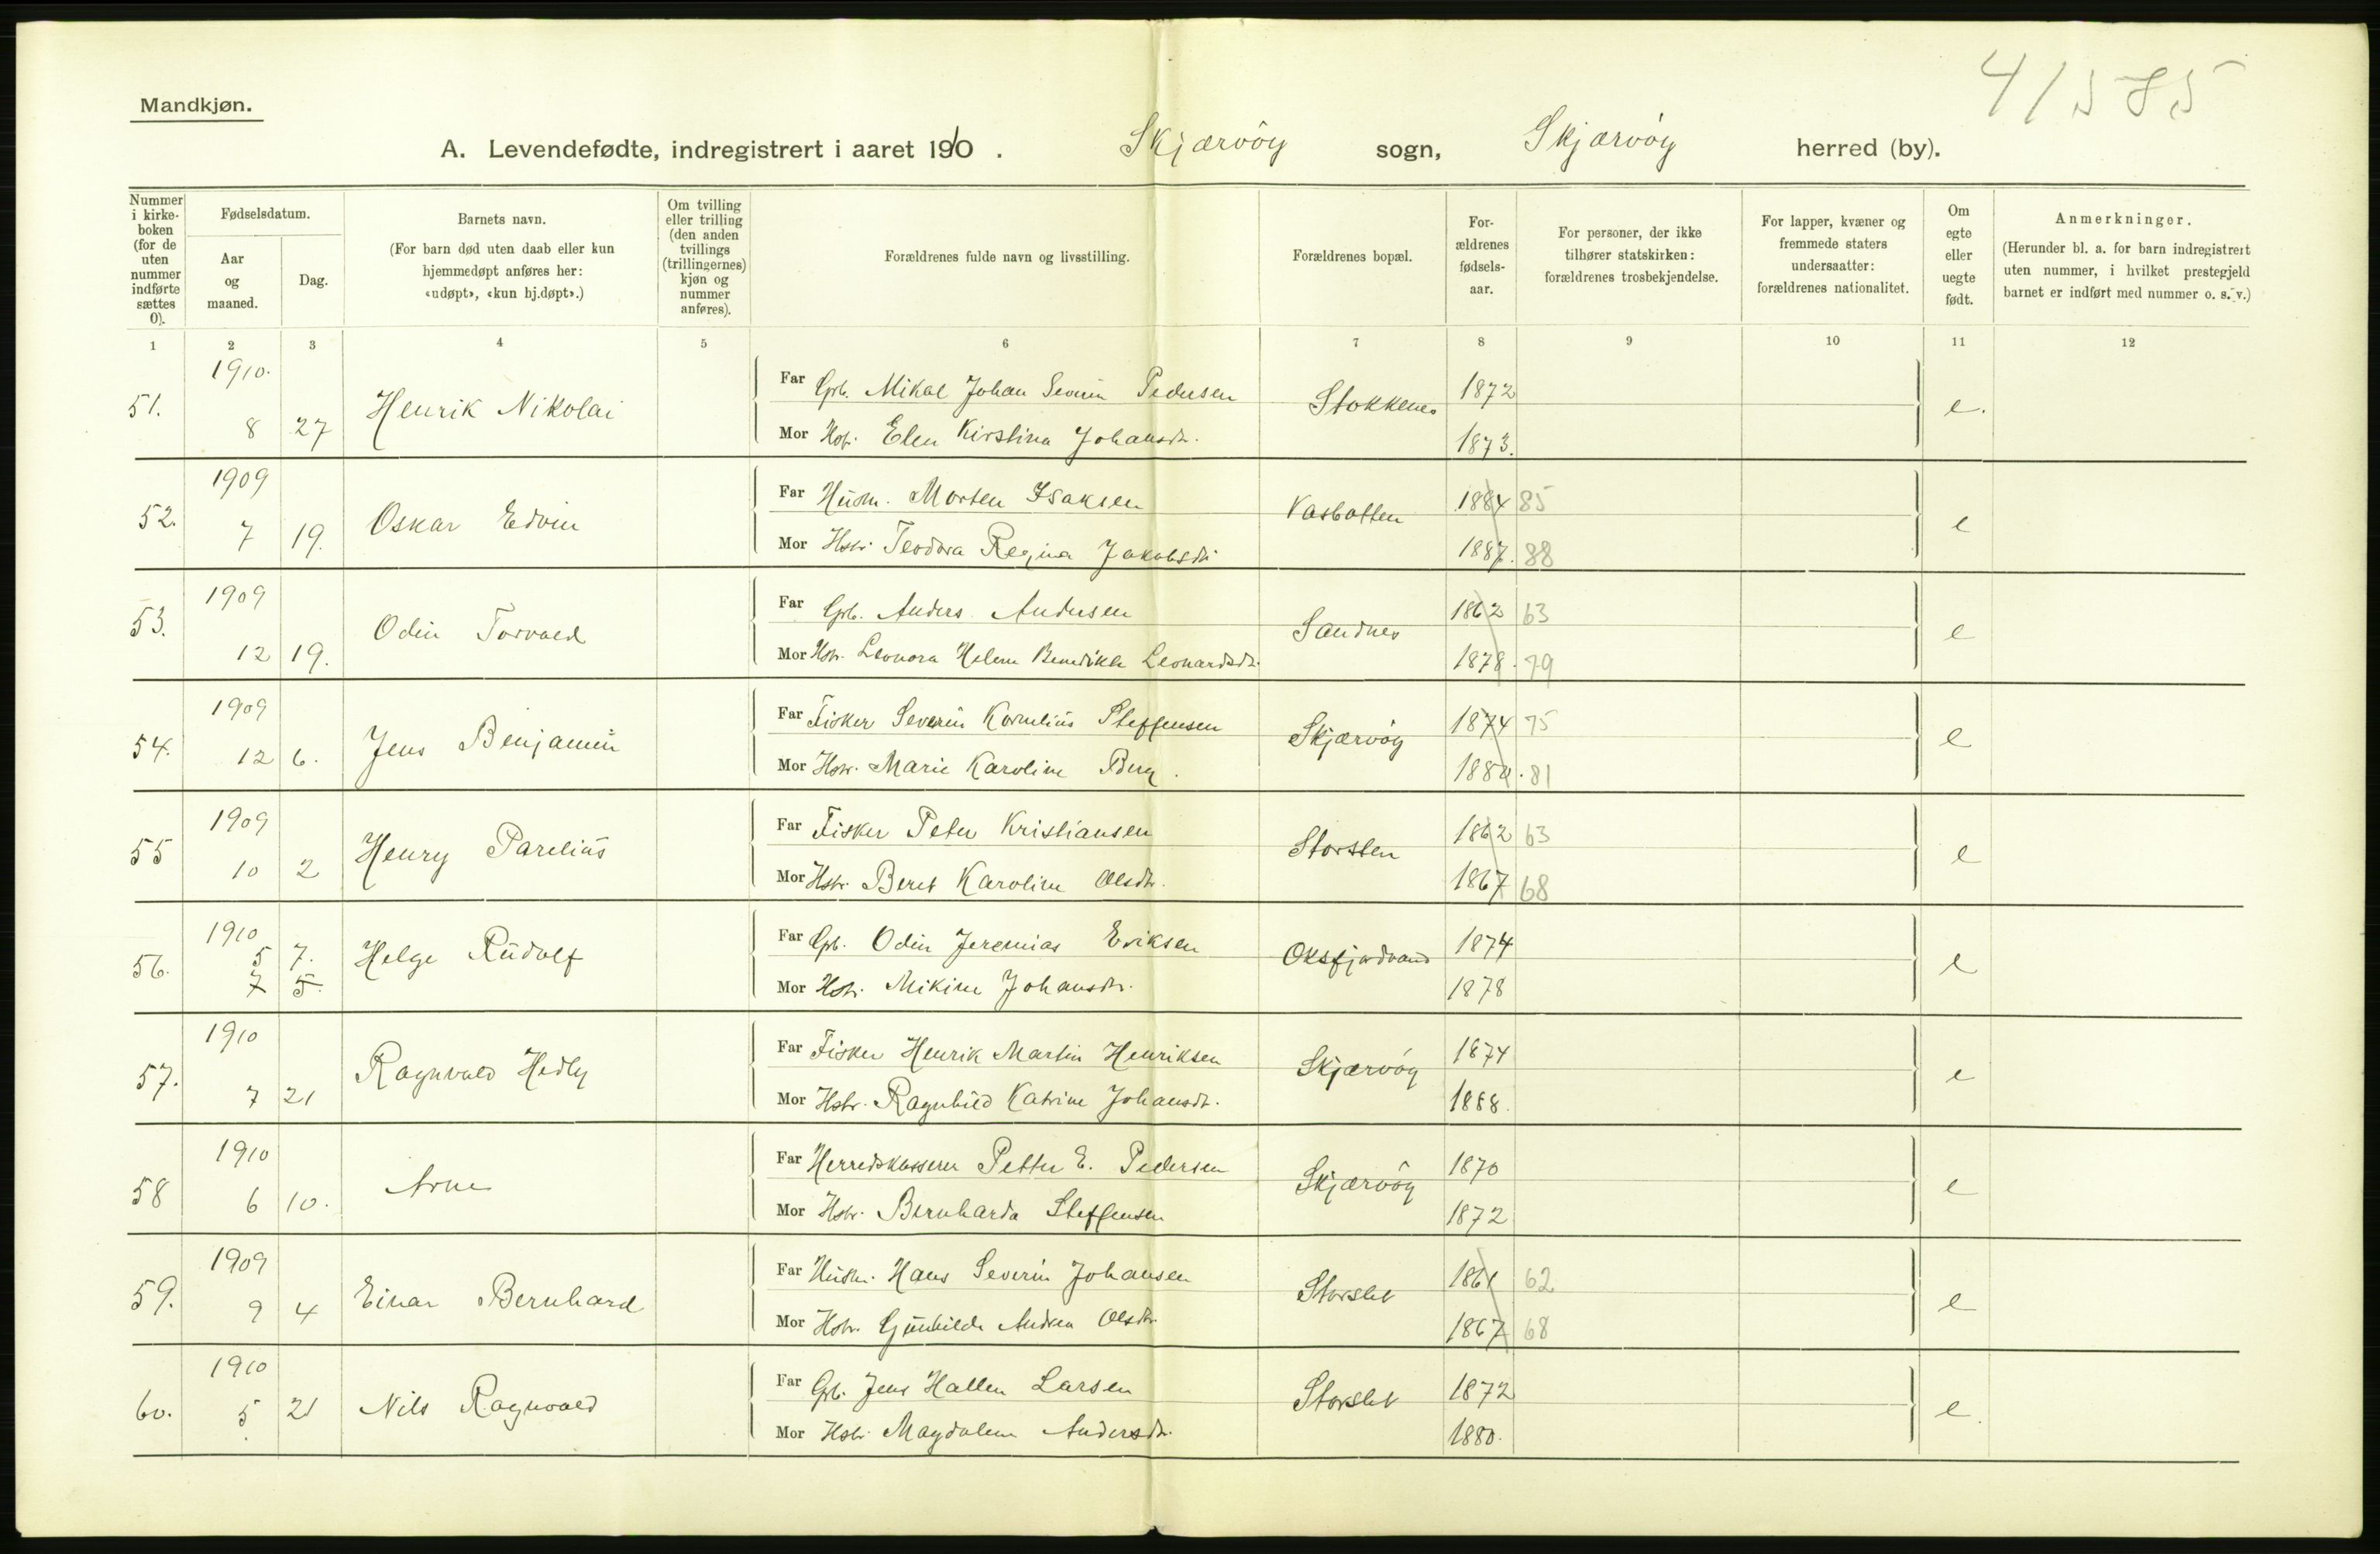 41585
Mandkjøn.
A. Levendefødte, indregistrert i aaret 1910. Skjærvöy sogn, Skjærvöy herred (by).
Nummer i kirkeboken (for de uten nummer indførte sættes 0).
Fødselsdatum.
Aar og maaned.
Dag.
Barnets navn.
(For barn død uten daab eller kun hjemmedøpt anføres her: «udøpt», «kun hj.døpt».)
Om tvilling eller trilling (den anden tvillings (trillingernes) kjøn og nummer anføres).
Forældrenes fulde navn og livsstilling.
Forældrenes bopæl.
Forældrenes fødselsaar.
For personer, der ikke tilhører statskirken: forældrenes trosbekjendelse.
For lapper, kvæner og fremmede staters undersaatter: forældrenes nationalitet.
Om egte eller uegte født.
Anmerkninger.
(Herunder bl. a. for barn indregistrert uten nummer, i hvilket prestegjeld barnet er indført med nummer o. s. v.)
1 2 3 4 5 6 7 8 9 10 11 12
51. 1910. 8 27 Henrik Nikolai
Far Grb. Mikal Johan Severin Pedersen Stokkenes 1872 e.
Mor Hstr. Elen Kirstina Johansdtr. 1873.
52. 1909 7 19. Oskar Edvin
Far Husm. Morten Isaksen Vasbotten 1884 85 e
Mor Hstr. Teodora Regina Jakobsdtr 1887. 88
53. 1909 12 19. Odin Torvald
Far Grb. Anders Andersen Sandnes 1862 63 e
Mor Hstr. Leonora Helene Benedikte Leonardsdtr. 1878. 79
54. 1909 12 6. Jens Benjamin
Far Fisker Severin Kornelius Steffensen Skjærvöy 1874 75 e
Mor Hstr. Marie Karoline Berg. 1880. 81
55 1909 10 2 Henry Parelius
Far Fisker Peter Kristiansen Storslen 1862 63 e
Mor Hstr. Beret Karoline Olsdtr. 1867 68
56. 1910 5 7. 7 5. Helge Rudolf
Far Grb. Odin Jeremias Eriksen Oksfjordvand 1874 e
Mor Hstr. Mikine Johansdtr. 1878
57. 1910 7 21 Ragnvald Hedly
Far Fisker Henrik Martin Henriksen Skjærvöy 1874 e
Mor Hstr. Ragnhild Katrine Johansdtr. 1888.
58 1910 6 10. Arne
Far Herredskasserer Petter E. Pedersen Skjærvöy 1870 e
Mor Hstr. Bernharda Steffensen 1872
59. 1909 9 4 Einar Bernhard
Far Husm. Hans Severin Johansen Storslet 1861 62 e
Mor Hstr. Gunhilde Andrea Olsdtr. 1867 68
60. 1910 5 21 Nils Ragnvald
Far Grb. Jens Hallen Larsen Storslet 1872 e.
Mor Hstr. Magdalene Andersdtr. 1880.